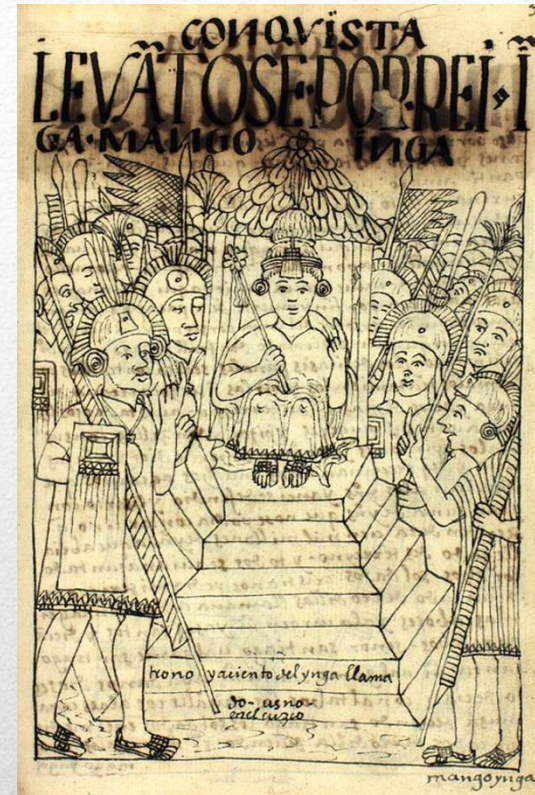 CONQVÍSTA
LEVÃTOSE·POR·REI·Ĩ
GA·MANGO INGA
trono yaciento del ynga llama
do-usno
en el cuzco
mango ynga